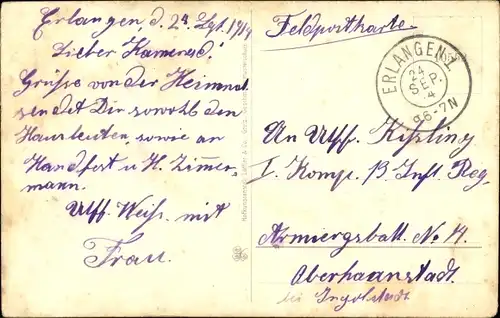 Erlangen d. 24 Sept. 1914
Lieber Kamerad!
Grüße von der Heimat
sendet Dir sowohl den
Hausleuten, sowie an
Handfest u H. Zimer-
mann.
Uffz. Weiß mit
Frau.
Feldpostkarte
ERLANGEN 1
24
SEP.
4
6-7N
An Uffz. Kißling
I. Komp. B. Inft. Reg.
Armierungsbatt. No 14.
Oberhaunstadt
bei Ingolstadt